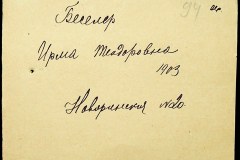 94
Беселер
Ирма Теодоровна
1903
Новоринская № 20.